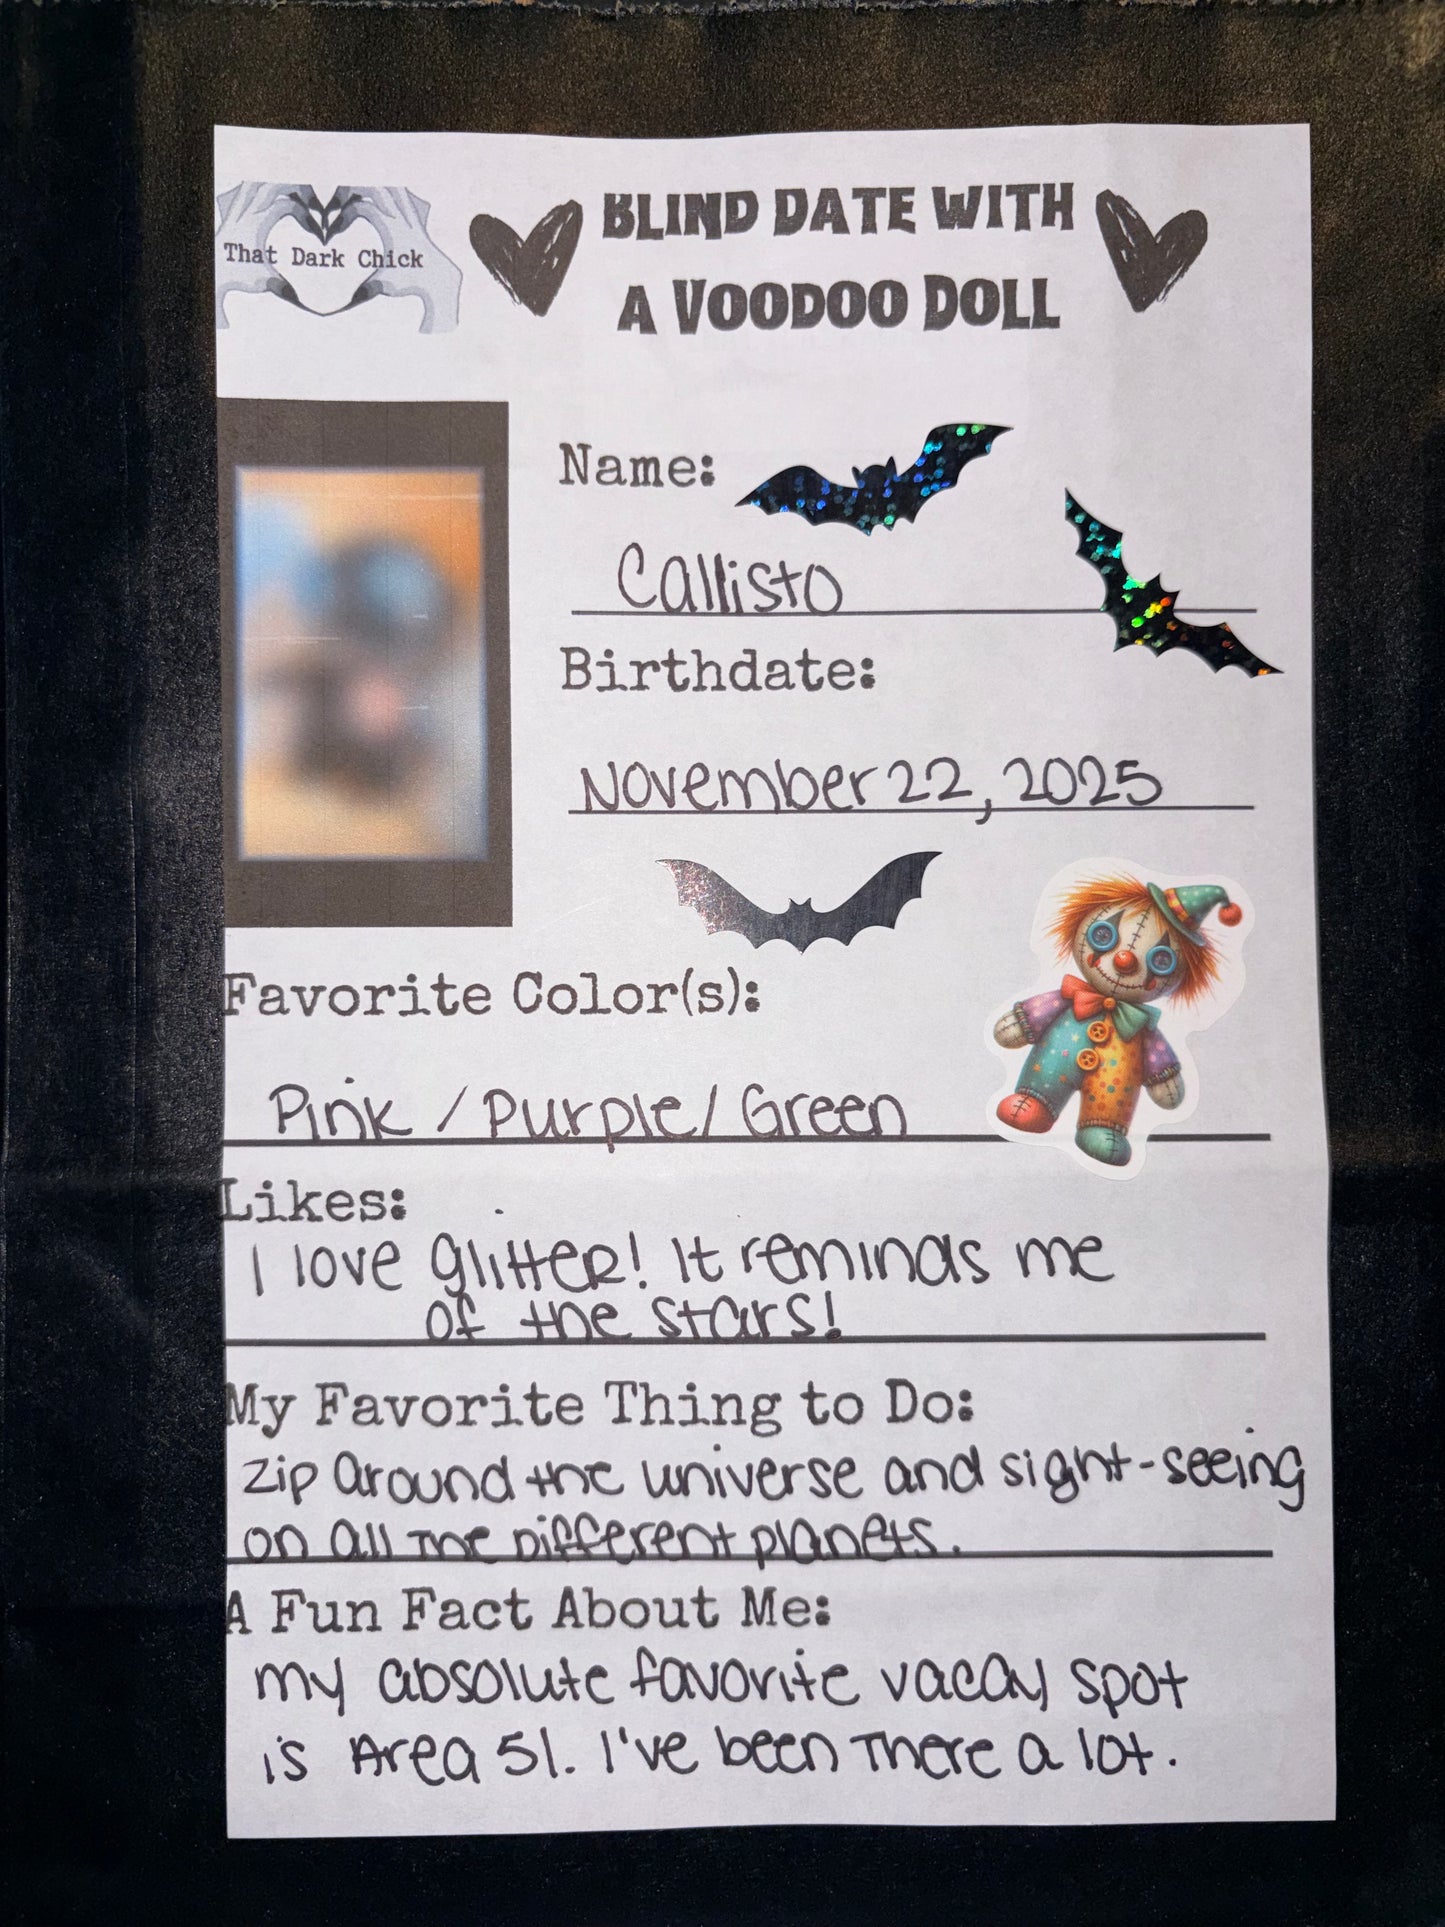 That Dark Chick
BLIND DATE WITH
A VOODOO DOLL
Name:
Callisto
Birthdate:
November 22, 2025
Favorite Color(s):
Pink / Purple / Green
Likes:
I love glitter! It reminds me
of the stars!
My Favorite Thing to Do:
Zip around the universe and sight-seeing
on all the different planets.
A Fun Fact About Me:
my absolute favorite vacay spot
is Area 51. I've been there a lot.